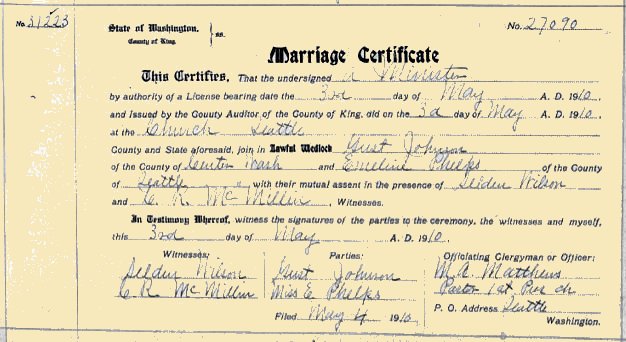 No. 31223
State of Washington, County of King. } ss.
No. 27090
Marriage Certificate
This Certifies, That the undersigned a Minister
by authority of a License bearing date the 3rd day of May A. D. 1910,
and issued by the County Auditor of the County of King, did on the 3d day of May A. D. 1910.
at the Church Seattle
County and State aforesaid, join in Lawful Wedlock Gust Johnson
of the County of Center Wash and Emeline Phelps of the County
of Seattle, with their mutual assent in the presence of Selden Wilson
and C. R. McMillin, Witnesses.
In Testimony Whereof, witness the signatures of the parties to the ceremony, the witnesses and myself,
this 3rd day of May A. D. 1910.
Witnesses: Parties: Officiating Clergyman or Officer:
Selden Wilson Gust Johnson M. A. Matthews
C. R. McMillin Miss E. Phelps Pastor 1st Pres ch
P. O. Address Seattle
Filed May 4 1910 Washington.